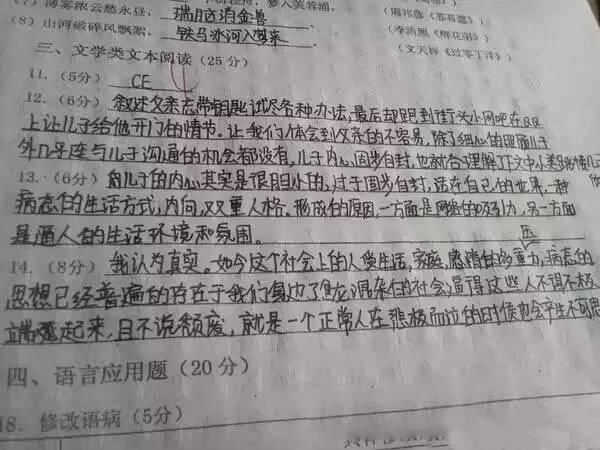 (7) 薄雾浓云愁永昼,瑞脑消金兽
(周邦彦《苏幕遮》)
(8) 山河破碎风飘絮,铁马冰河入梦来
(李清照《醉花阴》)
(文天祥《过零丁洋》)
三、文学类文本阅读(25分)
11.(5分) CE
12.(6分) 叙述父亲忘带钥匙试尽各种办法,最后却跑到街头小网吧在QQ
上让儿子给他开门的情节。让我们体会到父亲的不容易,除了细心的照顾儿子
外几乎连与儿子沟通的机会都没有,儿子内心固步自封,也就
13.(6分) 儿子的内心其实是很胆小的,过于固步自封,活在自己的世界,一种
病态的生活方式,内向,双重人格。形成的原因,一方面是网络的吸引力,另一方面
是逼人的生活环境和氛围。
14.(8分) 我认为真实。如今这个社会上的人受生活,家庭,感情的多重压力,病态的
思想已经普遍的存在于我们身边了,鱼龙混杂的社会逼得这些人不得不极
端起来,且不说颓废,就是一个正常人在悲极而泣的时候也会产生不可思
四、语言应用题(20分)
18. 修改语病(5分)